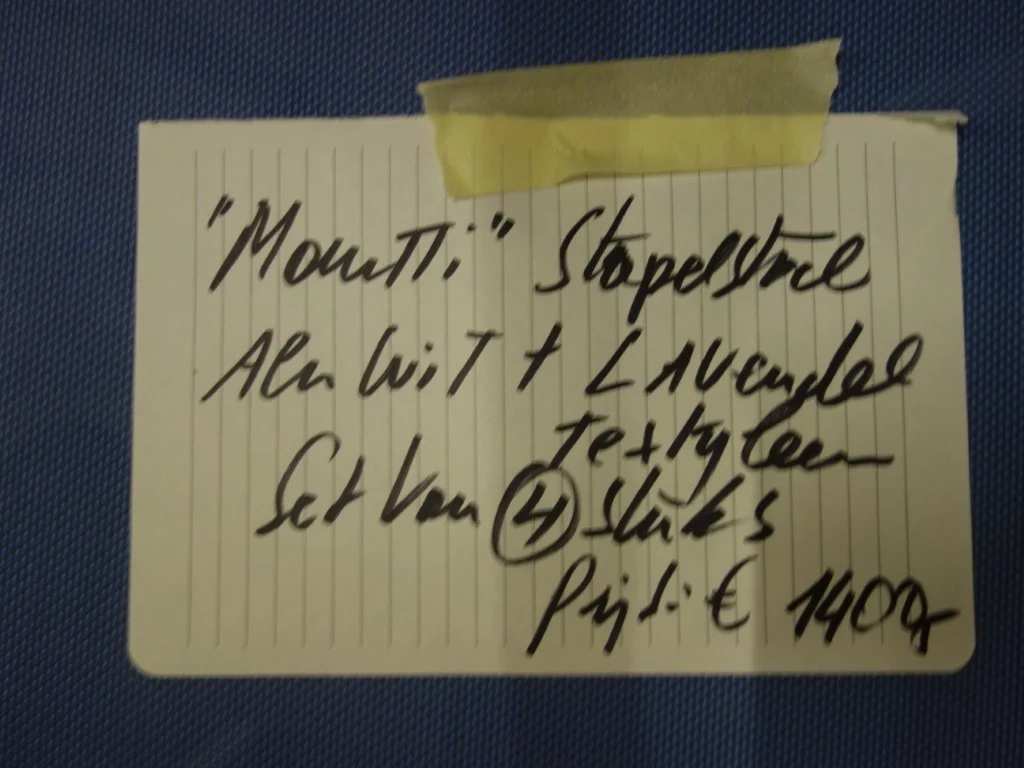 "Moretti" Stapelstoel
Alu Wit + Lavendel
Textyleen
Set van 4 stuks
Prijs: € 1400,-